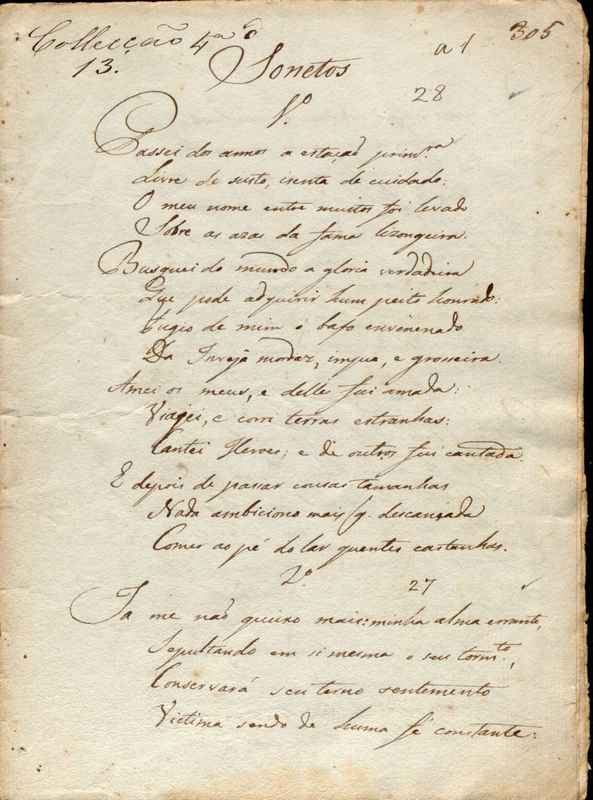 Collecção 4ª
13.
a 1
305
Sonetos
28
1.º
Passei dos annos a estação prim.ra
Livre de susto, izenta de cuidado:
O meu nome entre muitos foi levado
Sobre as azas da fama lizongeira.
Busquei do mundo a gloria verdadeira
Que pode adquirir hum peito honrado:
Fugio de mim o bafo envenenado
Da Inveja mordaz, impia, e grosseira.
Amei os meus, e delles fui amada:
Viajei, e corri terras estranhas:
Cantei Heroes; e de outros fui cantada.
E depois de passar cousas tamanhas
Nada ambiciono mais q. descançada
Comer ao pé do lar quentes castanhas.
2.º
27
Ja me não queixo mais: minha alma errante,
Sepultando em si mesma o seu torm.to,
Conservará seu terno sentemento
Victima sendo de huma fé constante: